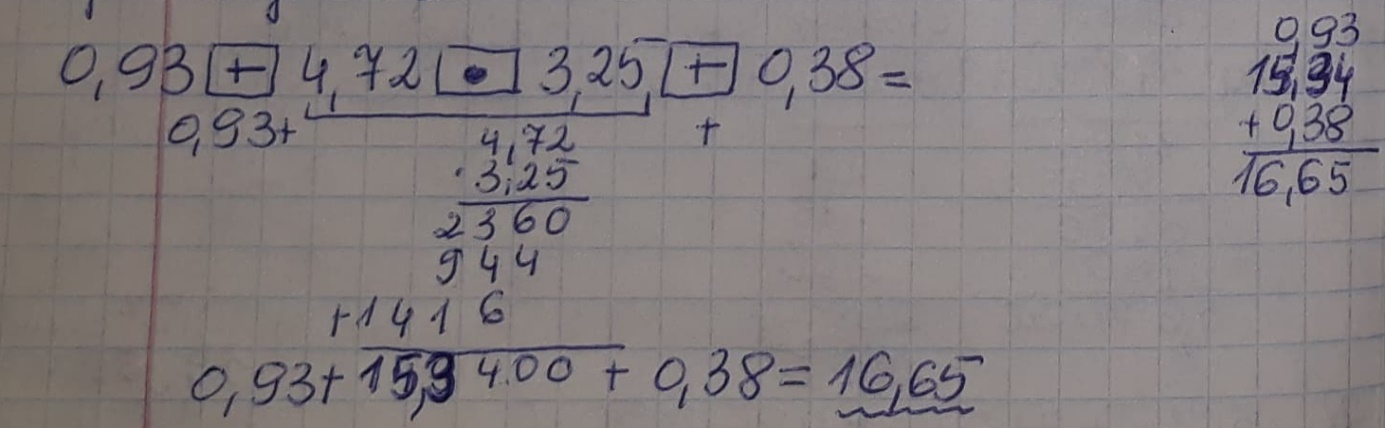 0,93 + 4,72 • 3,25 + 0,38 =
0,93+ +
4,72
· 3,25
2360
944
+1416
0,93+ 15,3400 + 0,38 = 16,65
0,93
15,34
+ 0,38
16,65